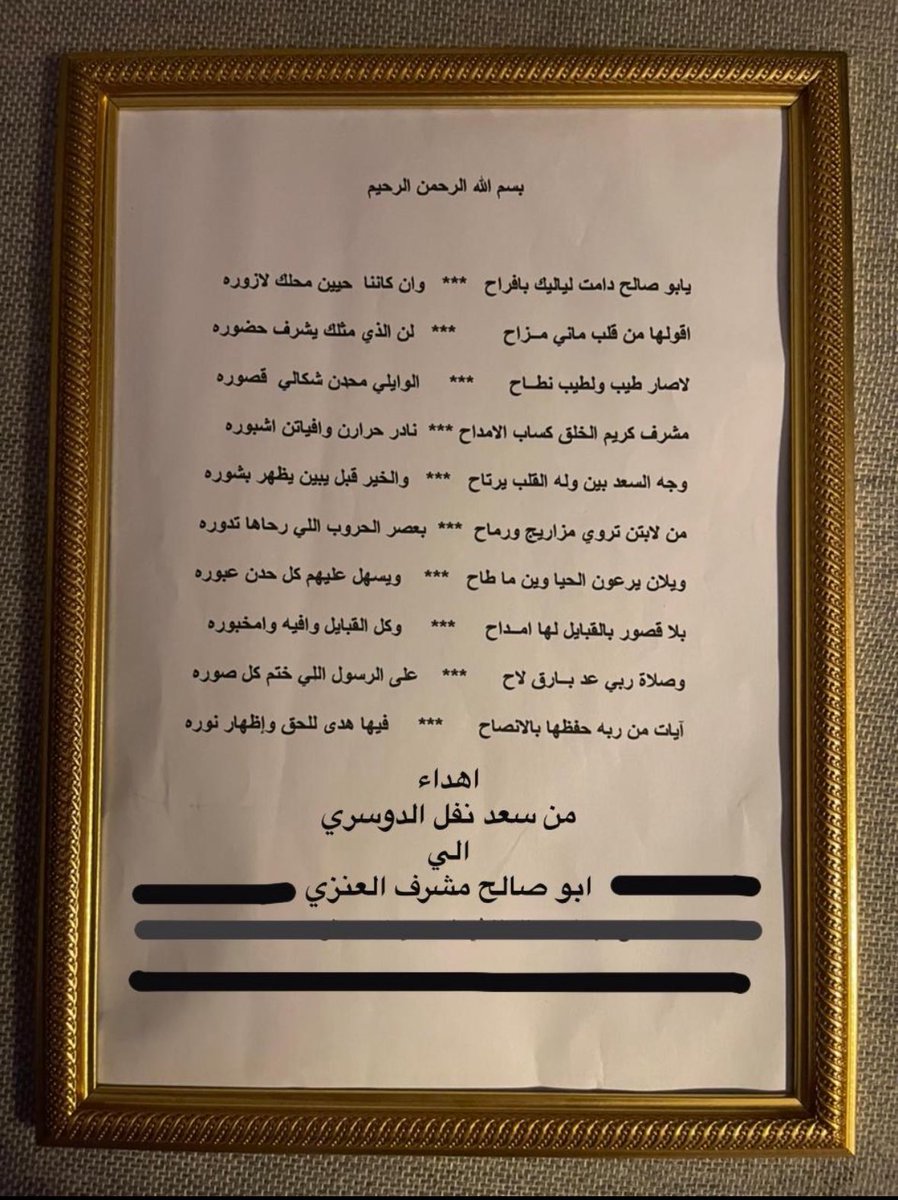 بسم الله الرحمن الرحيم
يابو صالح دامت لياليك بافراح *** وان كاننا حيين محلك لازوره
اقولها من قلب ماني مـزاح *** لن الذي مثلك يشرف حضوره
لاصار طيب ولطيب نطـاح *** الوايلي محدن شكالي قصوره
مشرف كريم الخلق كساب الامداح *** نادر حرارن وافياتن اشبوره
وجه السعد بين وله القلب يرتاح *** والخير قبل يبين يظهر بشوره
من لابتن تروي مزاريج ورماح *** بعصر الحروب اللي رحاها تدوره
ويلان يرعون الحيا وين ما طاح *** ويسهل عليهم كل حدن عبوره
بلا قصور بالقبايل لها امـداح *** وكل القبايل وافيه وامخبوره
وصلاة ربي عد بـارق لاح *** على الرسول اللي ختم كل صوره
آيات من ربه حفظها بالانصاح *** فيها هدى للحق وإظهار نوره
اهداء
من سعد نفل الدوسري
الي
ابو صالح مشرف العنزي